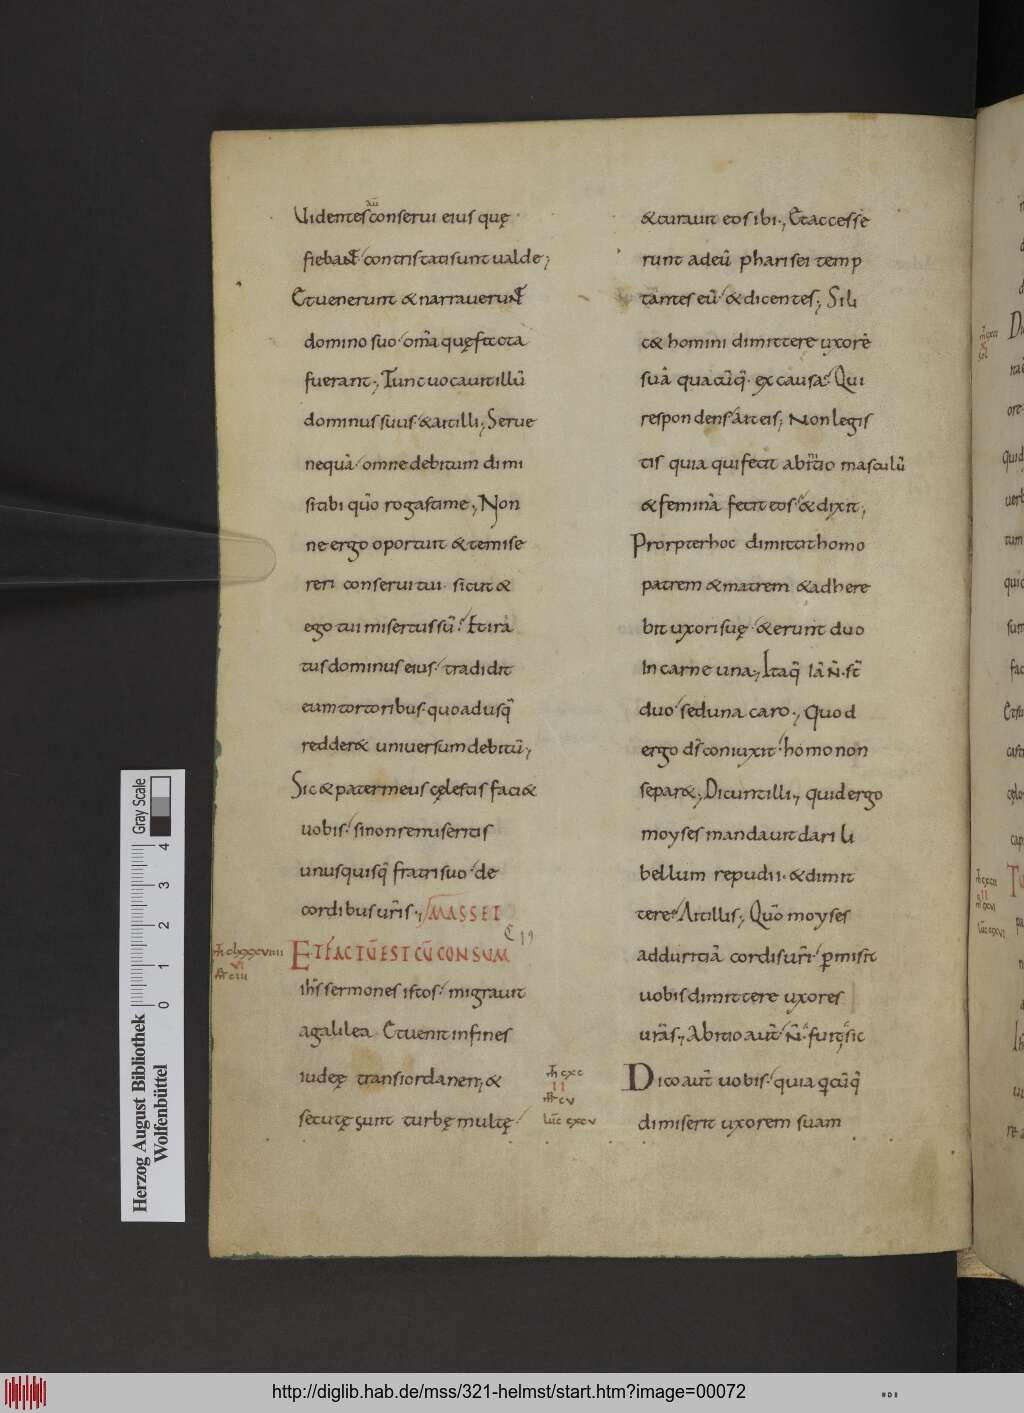 Uidentes aū conserui eius quę
fiebant contristati sunt ualde;
Et uenerunt & narrauerunt
domino suo. om̄a quę fccota
fuerant; Tunc uocauit illū
dominus suus. & ait illi; Serue
nequā omne debitum dimi
si tibi quō rogasti me; Non
ne ergo oportuit & te mise
reri conserui tui. sicut &
ego tui misertus sū? Et irā
tus dominus eius. tradidit
eum tortoribus. quo adusq̄
redder& uniuersum debitū;
Sic & pater meus cęlestis faci&
uobis. si non remiseritis
unusquisq̄ fratri suo de
cordibus ur̄is;
C 19
ET FACTŪ EST CŪ CONSUM
ih̄s sermones istos. migrauit
a galilea. Et uenit in fines
iudeę trans iordanen; &
secutę sunt turbę multę
& curauit eos ibi; Et accesse
runt ad eū pharisei temp
tantes eū. & dicentes; Si li
c& homini dimittere uxorē
suā quacūq̄. ex causa? Qui
respondens ait eis; Non legis
tis quia qui fecit ab initio masculū
& feminā fecit eos. & dixit;
Propter hoc dimittit homo
patrem & matrem & adhere
bit uxori suę. & erunt duo
in carne una; Itaq̄ iā n̄. st̄
duo. sed una caro; Quod
ergo dr̄ coniuxit. homo non
separ&; Dicunt illi; quid ergo
moyses mandauit dari li
bellum repudii. & dimit
tere? Ait illis; Quō moyses
ad duritiā cordis ur̄i. ꝑmisit
uobis dimittere uxores
urās; Ab itio aut̄ n̄. fuit sic
Dico aut̄ uobis. quia q̄cūq̄
dimiserit uxorem suam
m̄ cxc
II
mr̄ cv
luc̄ cxcv
Herzog August Bibliothek
Wolfenbüttel
Gray Scale
0 1 2 3 4
http://diglib.hab.de/mss/321-helmst/start.htm?image=00072